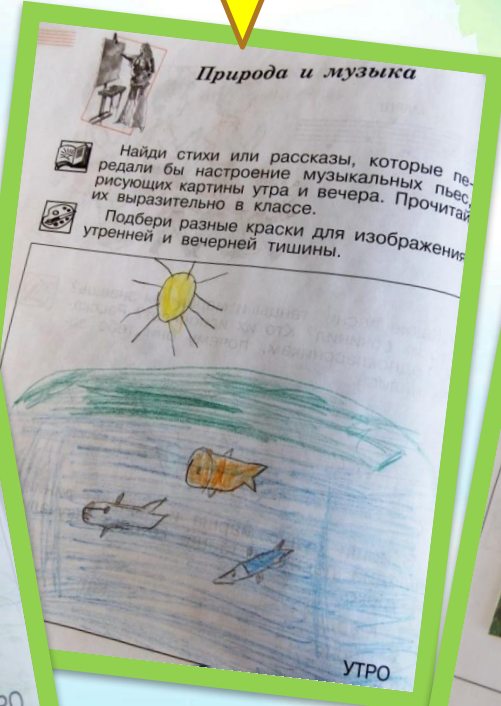 Природа и музыка
Найди стихи или рассказы, которые пе-
редали бы настроение музыкальных пьес,
рисующих картины утра и вечера. Прочитай
их выразительно в классе.
Подбери разные краски для изображения
утренней и вечерней тишины.
УТРО